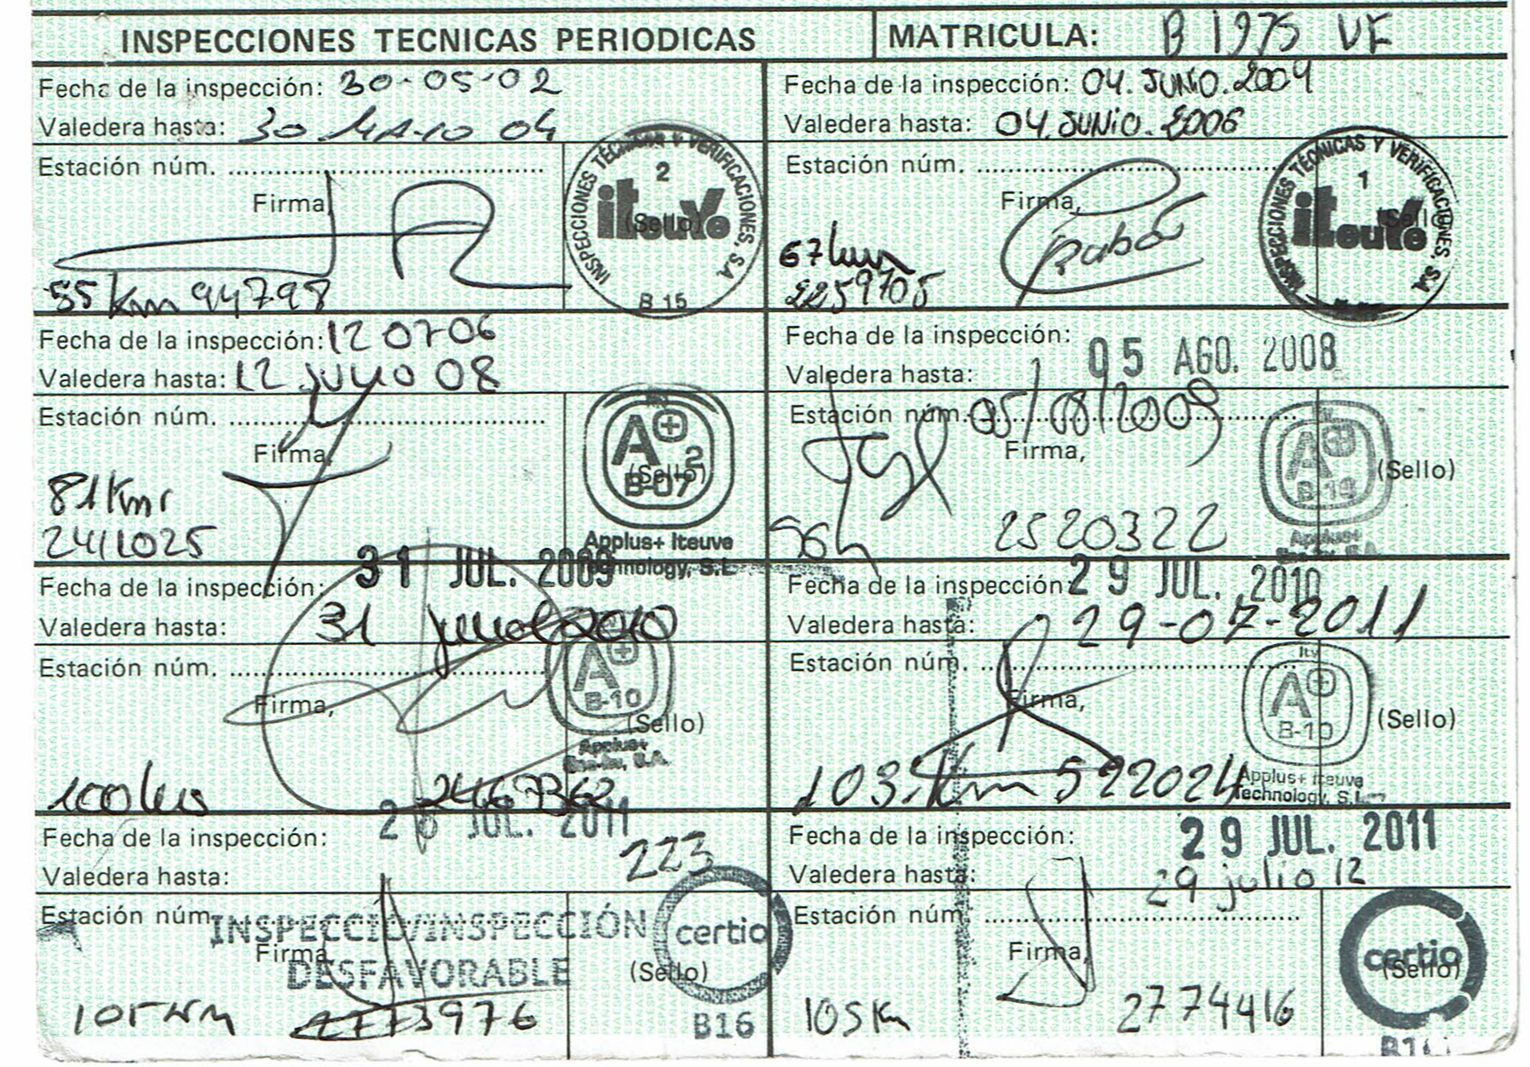 INSPECCIONES TECNICAS PERIODICAS
MATRICULA: B 1975 VF
Fecha de la inspección: 30-05-02
Valedera hasta: 30 MAYO 04
Estación núm.
Firma,
(Sello)
INSPECCIONES TÉCNICAS Y VERIFICACIONES, S.A
2
iTeuVe
B 15
55 Km 94798
Fecha de la inspección: 04. JUNIO. 2004
Valedera hasta: 04. JUNIO. 2006
Estación núm.
Firma,
(Sello)
INSPECCIONES TÉCNICAS Y VERIFICACIONES, S.A
1
iTeuVe
67 km
2259705
Fecha de la inspección: 12 07 06
Valedera hasta: 12 JULIO 08
Estación núm.
Firma,
(Sello)
A+ 2
B-07
Applus+ Iteuve
Technology, S.L
81 Km
2411025
Fecha de la inspección: 05 AGO. 2008
Valedera hasta:
05/08/2009
Estación núm.
Firma,
(Sello)
A+
B-19
Applus+
96
2520322
Fecha de la inspección: 31 JUL. 2009
Valedera hasta: 31 julio 2010
Estación núm.
Firma,
(Sello)
A+
B-10
Applus+
100
Fecha de la inspección: 29 JUL. 2010
Valedera hasta: 29-07-2011
Estación núm.
Firma,
(Sello)
Itv
A+
B-10
Applus+ Iteuve
Technology, S.L
103. Km 5922024
Fecha de la inspección: 26 JUL. 2011
Valedera hasta:
223
Estación núm.
INSPECCIÓ/INSPECCIÓN
DESFAVORABLE
Firma,
(Sello)
certio
B16
105 Km 2773976
Fecha de la inspección: 29 JUL. 2011
Valedera hasta: 29 julio 12
Estación núm.
Firma,
(Sello)
certio
105 Km
2774416